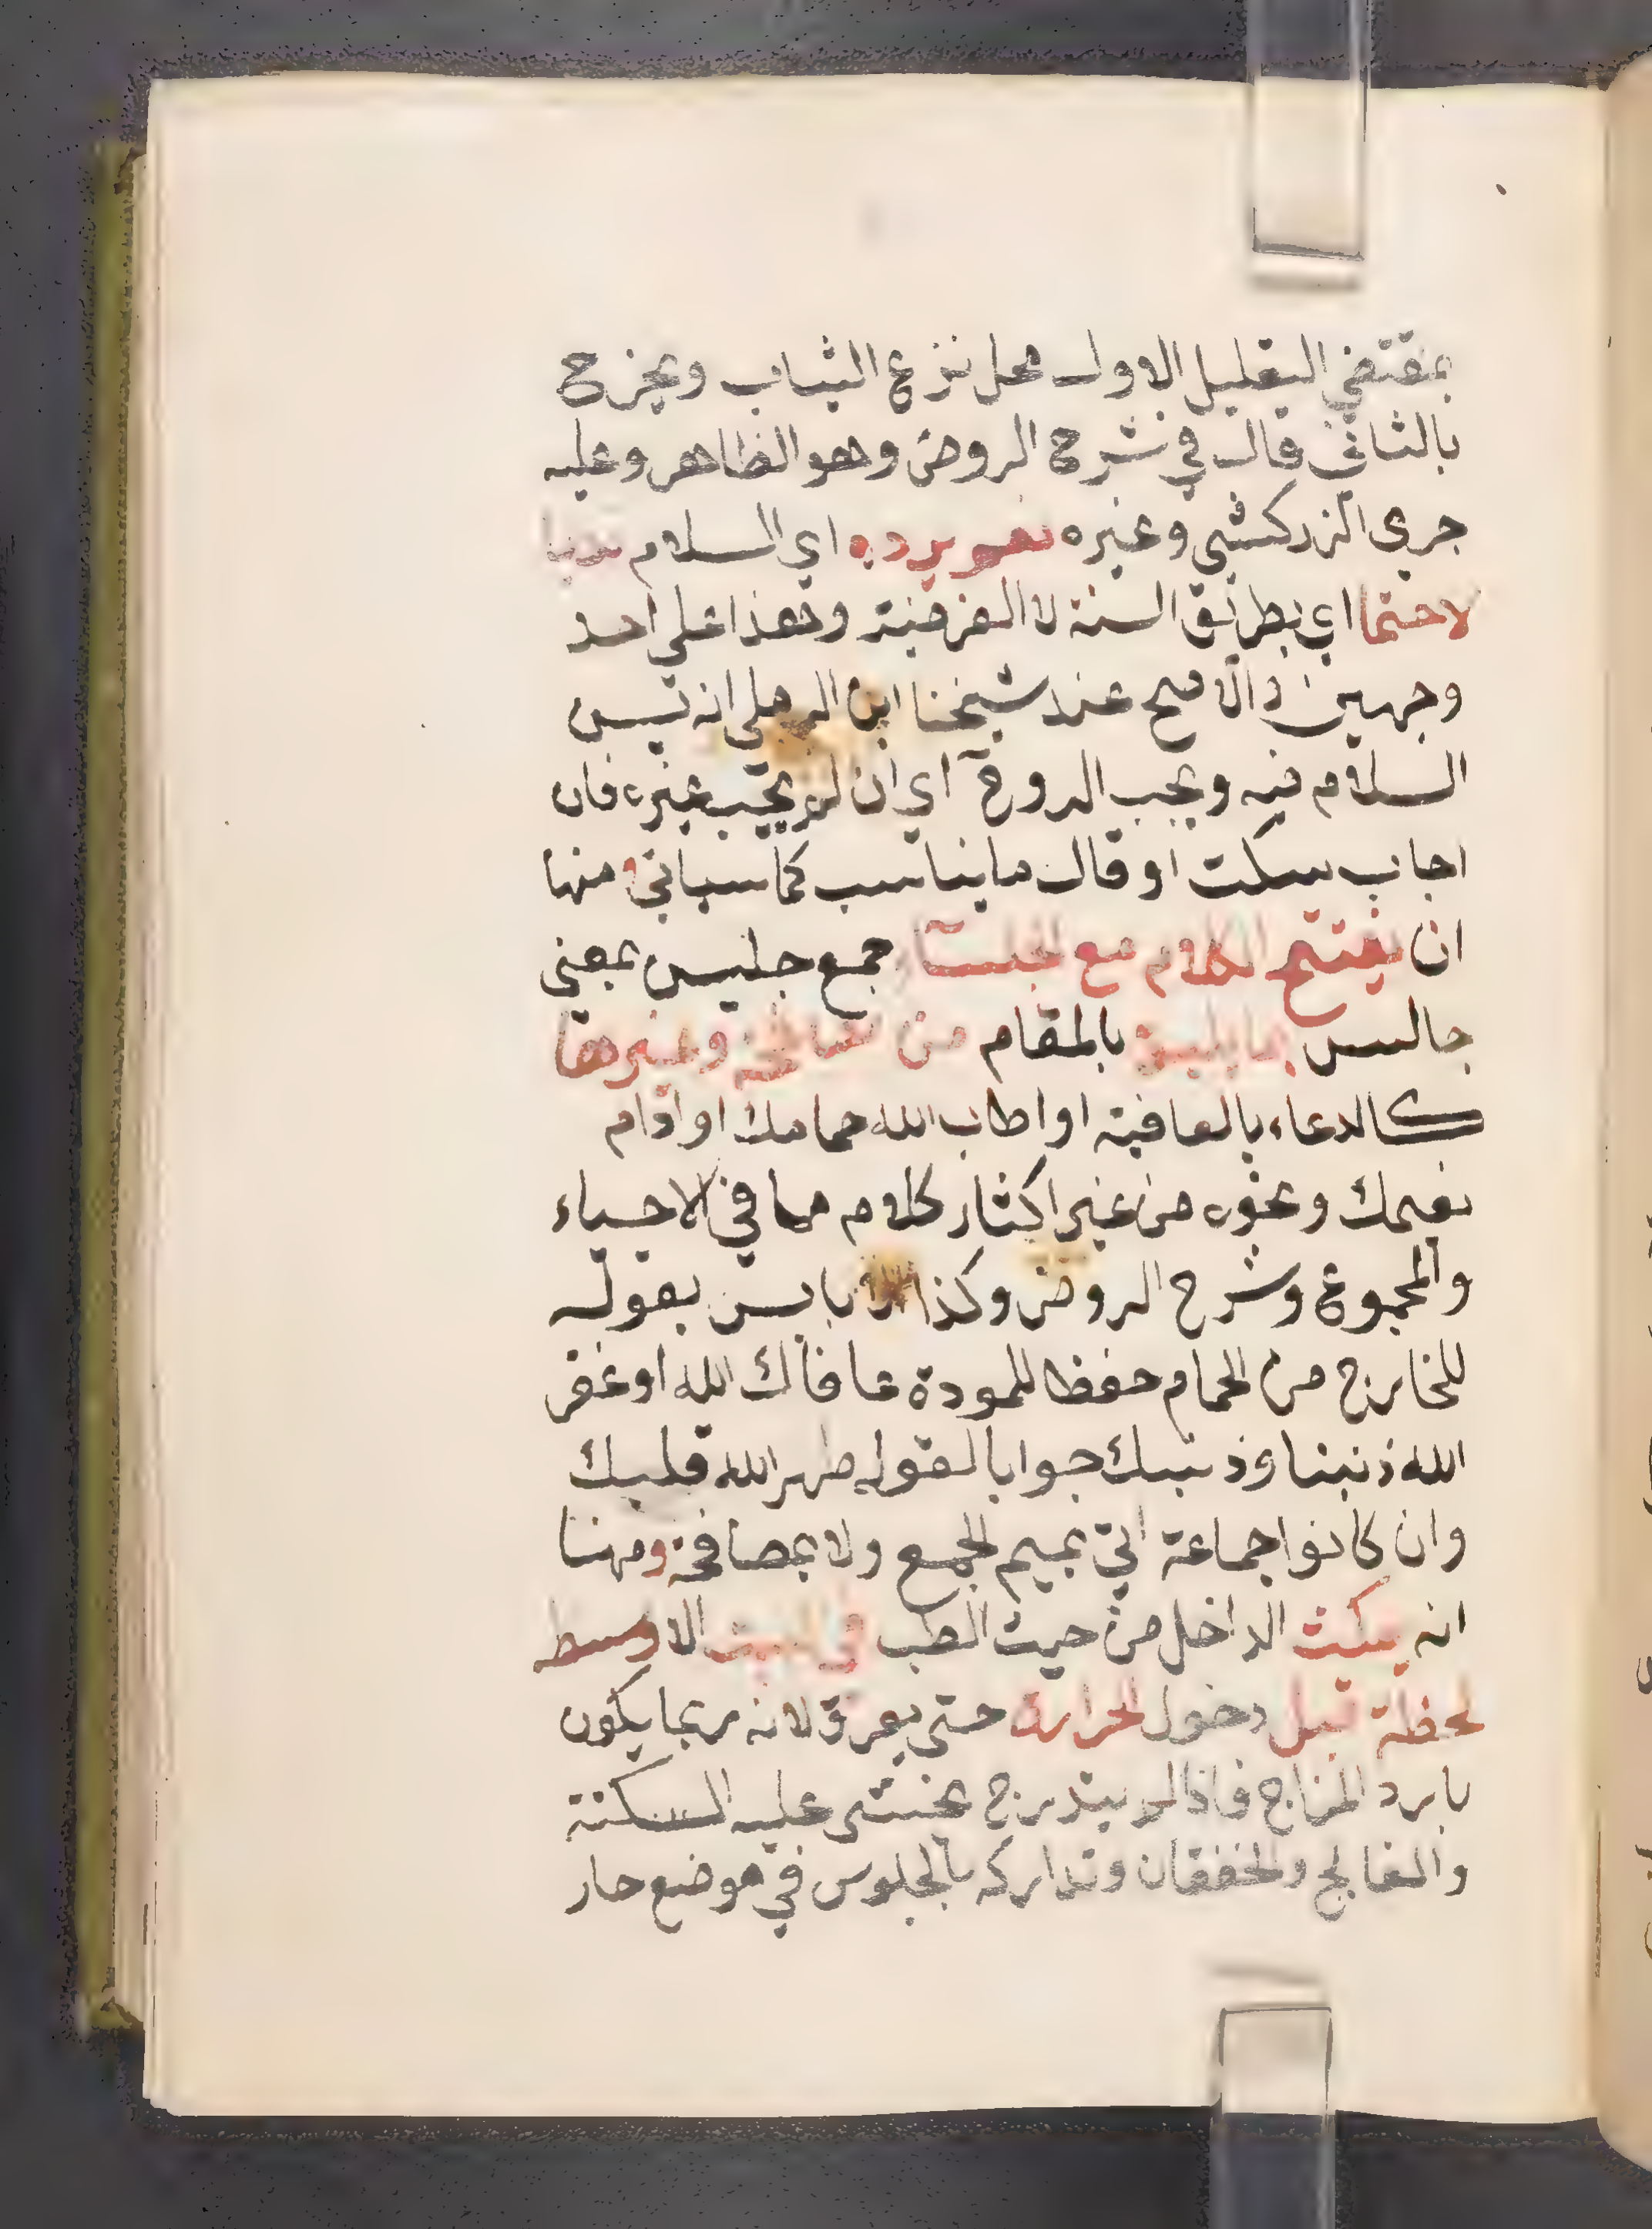 بمقتضي التعليل الاول محل نزع الثياب ويخرج
بالثاني قال في شرح الروض وهو الظاهر وعليه
جرى الزركشي وغيره نعم يرده اي السلام ندبا
لا حتما اي بطريق السنة لا الفرضية وهذا على احد
وجهين والاصح عند شيخنا ابن الرملي انه يسن
السلام فيه ويجب الرد وح اي ان لم يجب غيره فان
اجاب سكت او قال ما يناسب كما سياتي ومنها
ان يفتتح الكلام مع الجلسآء جمع جليس بمعني
جالس بما يليق بالمقام من مصافحة وغيرها
كالدعاء بالعافية او اطاب الله حمامك او ادام
نعيمك ونحوه من غير اكثار كلام مما في الاحياء
والمجموع وشرح الروض وكذا لا باس بقوله
للخارج من الحمام حفظا للمودة عافاك الله او غفر
الله ذنبنا وذنبك جوابا لقوله طهر الله قلبك
وان كانوا جماعة اتي بميم الجمع ولا بمصافحة ومنها
انه يمكث الداخل من حيث الطب في البيت الاوسط
لحظة قبل دخول الحرارة حتى يعرق لانه ربما يكون
بارد المزاج فاذا لم يتدرج يخشى عليه السكتة
والفالج والخفقان وتداركه بالجلوس في موضع حار